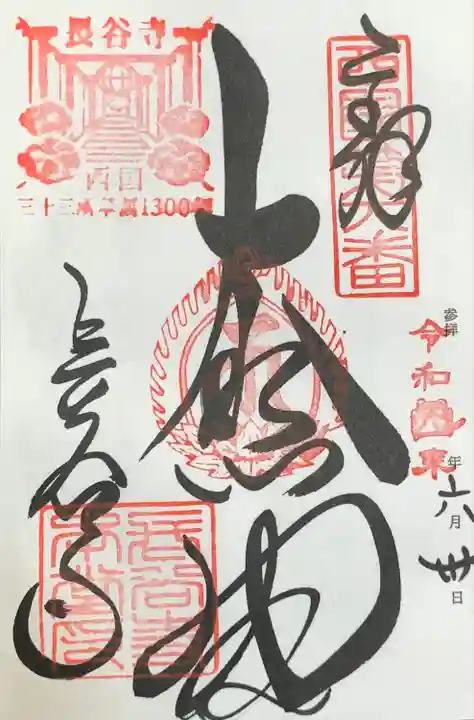 奉拝
西国第八番
参拝
令和四年
年六月卅日
大悲閣
長谷寺
西国
三十三所草創1300年
長谷寺
長谷寺
本堂印